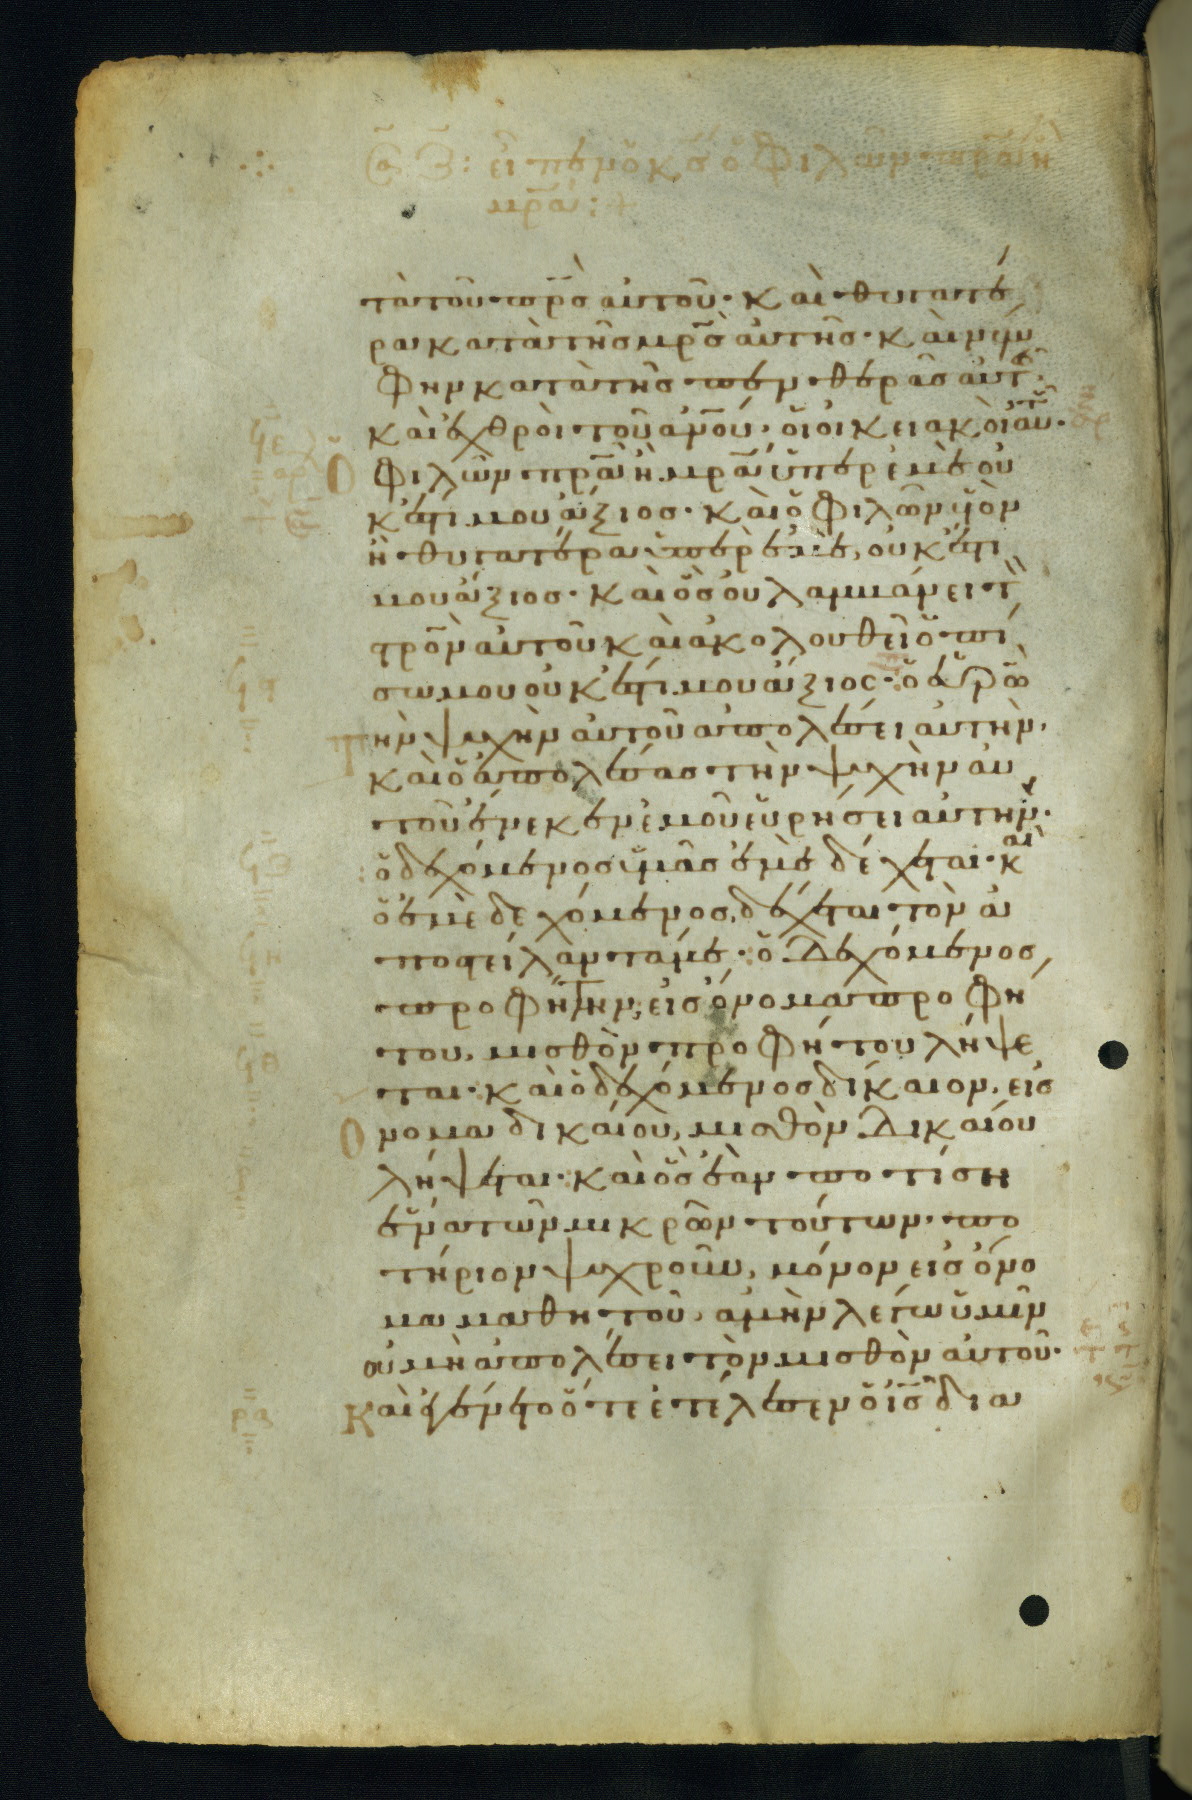 εἶπεν ὁ κς ὁ φιλῶν πρα ἢ
μρα :+
τὰ τοῦ πρς αὐτοῦ· καὶ θυγατέ
ρα κατὰ τῆς μρς αὐτῆς· καὶ νύμ
φην κατὰ τῆς πενθερᾶς αὐτ
καὶ ἐχθροὶ τοῦ ανου, οἱ οἰκειακοὶ αὐτοῦ·
Ο φιλῶν πρα ἢ μρα ὑπὲρ ἐμὲ οὐ
κ ἔστι μου ἄξιος· καὶ ὁ φιλῶν υἱὸν
ἢ θυγατέρα ὑπὲρ ἐμὲ, οὐκ ἔστι
μου ἄξιος· καὶ ὃς οὐ λαμβάνει τὸ
στρον αὐτοῦ καὶ ἀκολουθεῖ ὀπί
σω μου οὐκ ἔστι μου ἄξιος· ὁ εὑρὼ
ὴν ψυχὴν αὐτοῦ ἀπολέσει αὐτὴν·
καὶ ὁ ἀπολέσας τὴν ψυχὴν αὐ
τοῦ ἕνεκεν ἐμοῦ εὑρήσει αὐτήν·
ὁ δεχόμενος ὑμᾶς ἐμὲ δέχεται· καὶ
ὁ ἐμὲ δεχόμενος, δέχεται τὸν ἀ
ποστείλαντά με· ὁ δεχόμενος
προφήτην, εἰς ὄνομα προφή
του, μισθὸν προφήτου λήψε
ται· καὶ ὁ δεχόμενος δίκαιον, εἰς
Ονομα δικαίου, μισθὸν δικαίου
λήψεται· καὶ ὃς ἐὰν ποτίση
ἕνα τῶν μικρῶν τούτων· πο
τήριον ψυχροῦν, μόνον εἰς ὄνο
μα μαθητοῦ, ἀμὴν λέγω ὑμῖν
οὐ μὴ ἀπολέσει τὸν μισθὸν αὐτοῦ·
Καὶ ἐγένετο ὅτε ἐτέλεσεν ὁ ις δια